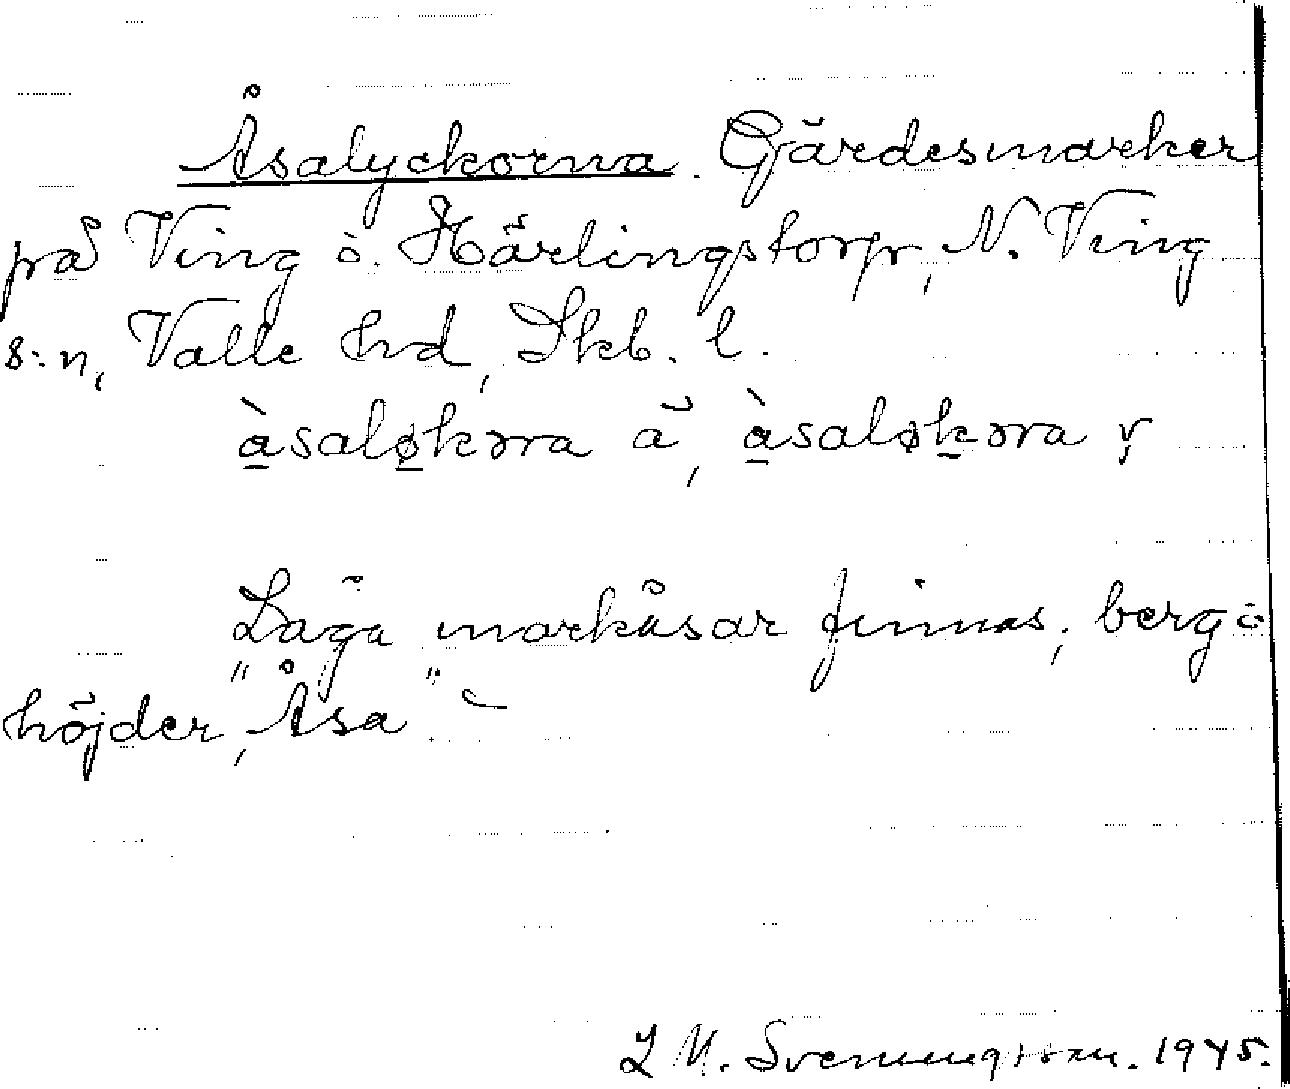 Åsalyckorna. Gärdesmarker
på Ving ö. Härlingstorp, N. Ving
s:n, Valle hd, Skb. l.
àsaløkǝra ä, àsaløkǝra
Låga markåsar finnas, berg ö
höjder, "Åsa".
L M. Svenungsson. 1945.